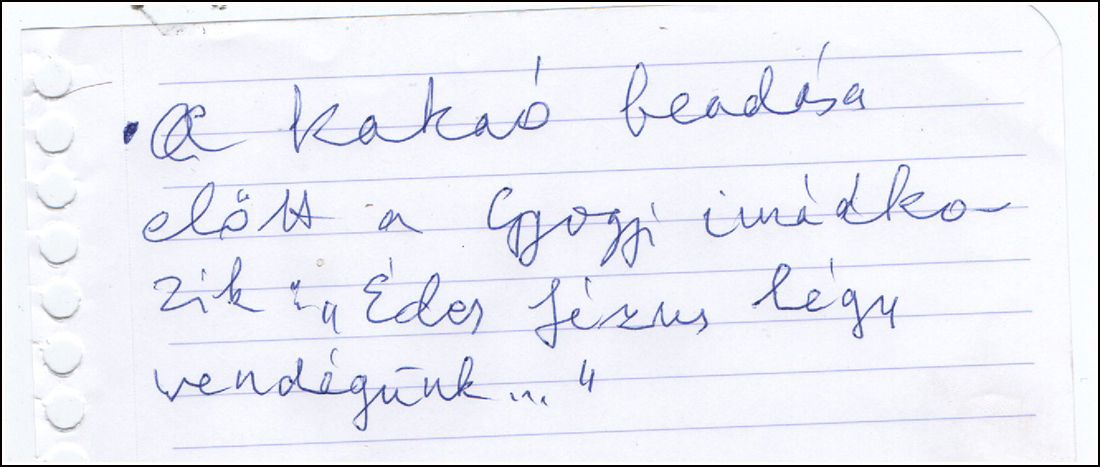 • A kakaó beadása
előtt a Gyogyi imádko-
zik: „Édes Jézus légy
vendégünk..."